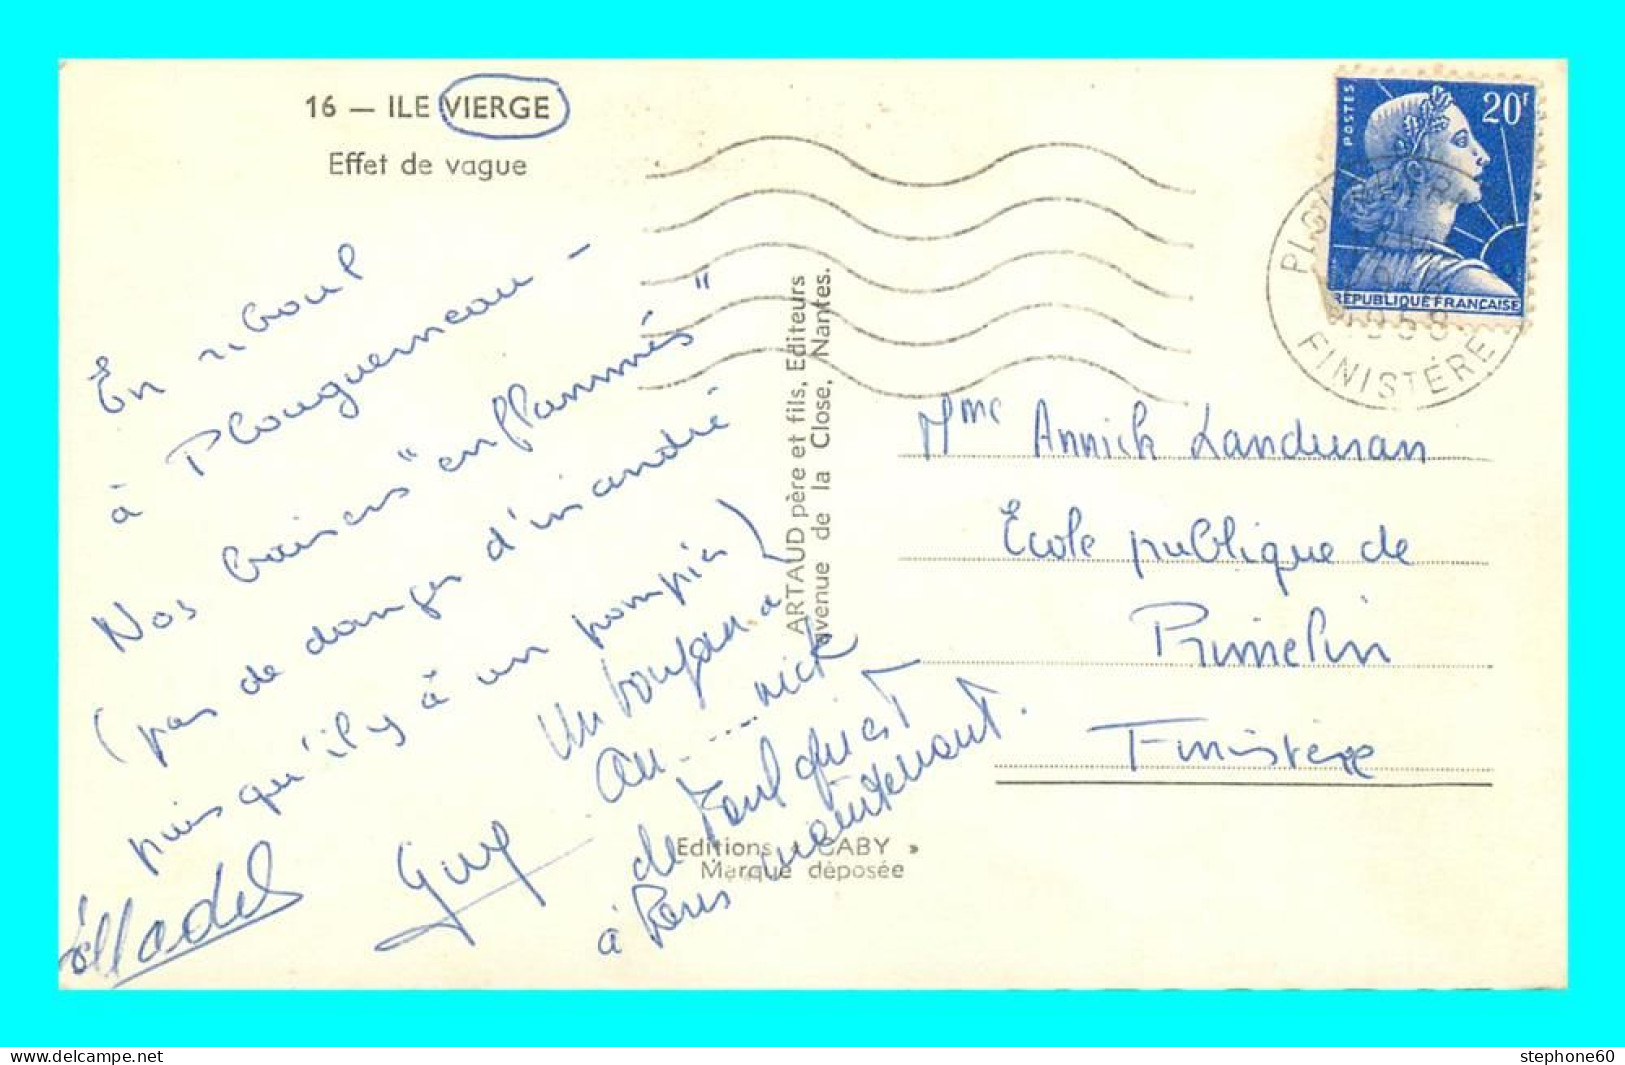 16 — ILE VIERGE
Effet de vague
POSTES
20F
REPUBLIQUE FRANÇAISE
1958
FINISTÈRE
En
à Plouguerneau -
Nos baisers "enflammés"
(pas de danger d'incendie
puis qu'il y à un pompier)
Guy
Un bonjour à
An.....nick
de Paul qui est
à Paris maintenant.
ARTAUD père et fils, Editeurs
avenue de la Close, Nantes.
Editions « GABY »
Marque déposée
Mme Annick Landuran
École publique de
Primelin
Finistère
delcampe.net
stephone60